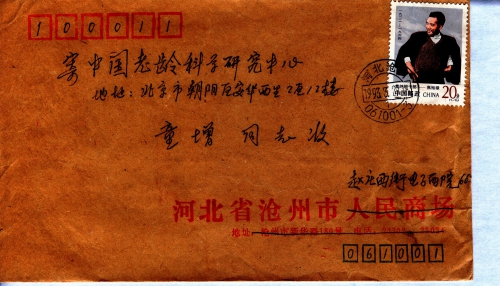 100011
寄中国老龄科学研究中心
地址:北京市朝阳区安华西里2区12楼
童增 同志收
中国邮政 CHINA
20分
河北沧
061001
赵庄西街电子南院
河北省沧州市人民商场
地址:沧州市新华路180号 电话:
061001